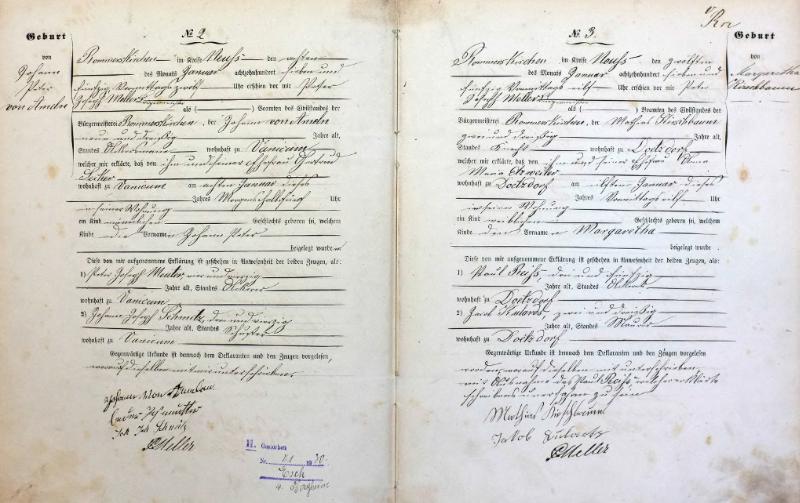 № 2
Geburt
von
Johann
Peter
von Ameln
Rommerskirchen im Kreise Neuß den achten
des Monats Januar achtzehnhundert sieben und
fünfzig Vormittags Uhr erschien vor mir Peter
Joseph Meller
als ( ) Beamten des Civilstandes der
Bürgermeisterei Rommerskirchen, der Johann von Ameln
neun und Jahre alt,
Standes Ackersmann wohnhaft zu Vanicum
welcher mir erklärte, daß von ihm und seiner Ehefrau Gertrud
wohnhaft zu Vanicum am achten Januar dieses
Jahres Morgens halb fünf Uhr
in seiner Wohnung
ein Kind männlichen Geschlechts geboren sei, welchem
Kinde die Vornamen Johann Peter
beigelegt wurden
Diese von mir aufgenommene Erklärung ist geschehen in Anwesenheit der beiden Zeugen, als:
1) Peter Joseph vier und vierzig
Jahre alt, Standes Ackerer
wohnhaft zu Vanicum
2) Johann Joseph Schmitz, drei und vierzig
Jahre alt, Standes Schuster
wohnhaft zu Vanicum
Gegenwärtige Urkunde ist demnach dem Deklaranten und den Zeugen vorgelesen
worauf dieselben mit mir unterschrieben
Johann von Ameln
Joh Jos Schmitz
PJMeller
H. Gestorben
Nr. 41 1930
Esch
№ 3.
Geburt
von
Margaretha
Kirschbaum
Rommerskirchen im Kreise Neuß den zwölften
des Monats Januar achtzehnhundert sieben und
fünfzig Vormittags elf Uhr erschien vor mir Peter
Joseph Meller
als ( ) Beamten des Civilstandes der
Bürgermeisterei Rommerskirchen, der Mathias Kirschbaum
zwei und dreißig Jahre alt,
Standes Knecht wohnhaft zu Doetzdorf
welcher mir erklärte, daß von ihm und seiner Ehefrau Anna
Maria
wohnhaft zu Doetzdorf am elften Januar dieses
Jahres Vormittags elf Uhr
in seiner Wohnung
ein Kind weiblichen Geschlechts geboren sei, welchem
Kinde den Vornamen Margaretha
beigelegt wurde
Diese von mir aufgenommene Erklärung ist geschehen in Anwesenheit der beiden Zeugen, als:
1) Paul Reiß drei und fünfzig
Jahre alt, Standes Ackerer
wohnhaft zu Doetzdorf
2) Jacob zwei und dreißig
Jahre alt, Standes Maurer
wohnhaft zu Doetzdorf
Gegenwärtige Urkunde ist demnach dem Deklaranten und den Zeugen vorgelesen
worden, worauf dieselben mit unterschrieben,
mit Ausnahme des Paul Reiß, welcher erklärte
schreibens unerfahren zu sein
Mathias Kirschbaum
Jakob
PJMeller